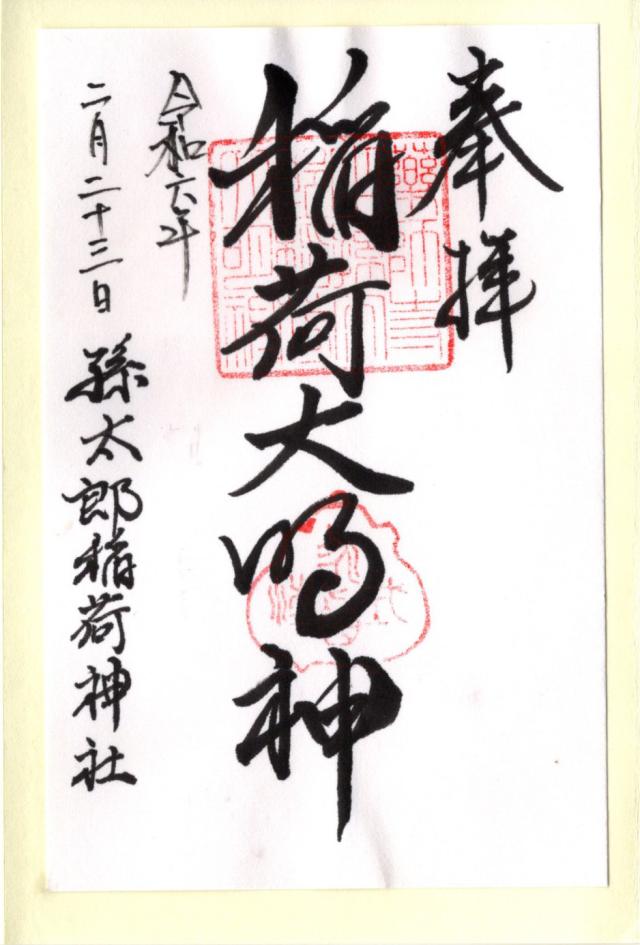 奉拝
稲荷大明神
令和六年
二月二十三日
孫太郎稲荷神社